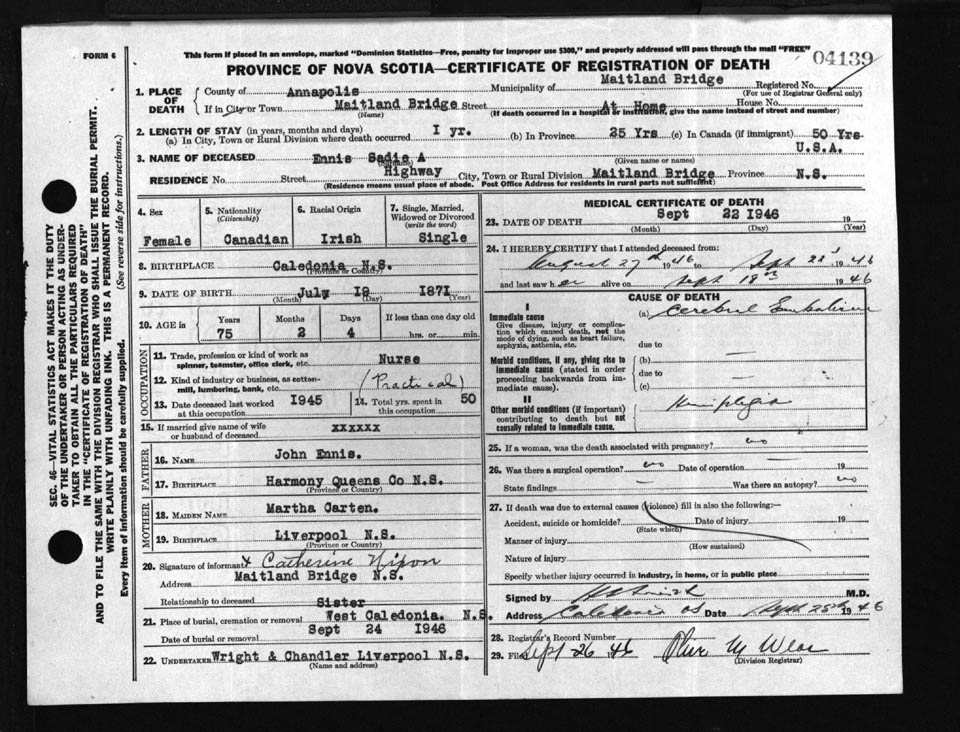 FORM 6
This form if placed in an envelope, marked "Dominion Statistics—Free, penalty for improper use $300," and properly addressed will pass through the mail "FREE"
04139
PROVINCE OF NOVA SCOTIA—CERTIFICATE OF REGISTRATION OF DEATH
1. PLACE OF DEATH
County of Annapolis Municipality of Maitland Bridge Registered No.
(For use of Registrar General only)
If in City or Town Maitland Bridge Street At Home House No.
(Name) (If death occurred in a hospital or institution, give the name instead of street and number)
2. LENGTH OF STAY (in years, months and days)
(a) In City, Town or Rural Division where death occurred I yr. (b) In Province 25 Yrs (c) In Canada (if immigrant) 50 Yrs
U.S.A.
3. NAME OF DECEASED Ennis Sadie A
(Surname) (Given name or names)
RESIDENCE No. Street Highway City, Town or Rural Division Maitland Bridge Province N.S.
(Residence means usual place of abode. Post Office Address for residents in rural parts not sufficient)
4. Sex
Female
5. Nationality
(Citizenship)
Canadian
6. Racial Origin
Irish
7. Single, Married, Widowed or Divorced
(write the word)
Single
8. BIRTHPLACE Caledonia N.S.
(Province or Country)
9. DATE OF BIRTH July I8 I871
(Month) (Day) (Year)
10. AGE in
Years Months Days If less than one day old
75 2 4 hrs. or min.
OCCUPATION
11. Trade, profession or kind of work as
spinner, teamster, office clerk, etc. Nurse
12. Kind of industry or business, as cotton-
mill, lumbering, bank, etc. (Practical)
13. Date deceased last worked
at this occupation I945
14. Total yrs. spent in
this occupation 50
15. If married give name of wife
or husband of deceased xxxxxx
FATHER
16. NAME John Ennis.
17. BIRTHPLACE Harmony Queens Co N.S.
(Province or Country)
MOTHER
18. MAIDEN NAME Martha Carten.
19. BIRTHPLACE Liverpool N.S.
(Province or Country)
20. Signature of informant x Catherine Nixon
Address Maitland Bridge N.S.
Relationship to deceased Sister
21. Place of burial, cremation or removal West Caledonia. N.S.
Date of burial or removal Sept 24 1946
22. UNDERTAKER Wright & Chandler Liverpool N.S.
(Name and address)
MEDICAL CERTIFICATE OF DEATH
23. DATE OF DEATH Sept 22 1946 19
(Month) (Day) (Year)
24. I HEREBY CERTIFY that I attended deceased from:
August 27th 1946 to Sept 22 1946
and last saw her alive on Sept 18th 1946
CAUSE OF DEATH
I
Immediate cause
Give disease, injury or complication which caused death, not the mode of dying, such as heart failure, asphyxia, asthenia, etc.
(a) Cerebral Embolism
due to
Morbid conditions, if any, giving rise to immediate cause (stated in order proceeding backwards from immediate cause).
(b) —
due to
(c) —
II
Other morbid conditions (if important) contributing to death but not causally related to immediate cause.
Hemiplegia
25. If a woman, was the death associated with pregnancy? no
26. Was there a surgical operation? no Date of operation — 19
State findings — Was there an autopsy? no
27. If death was due to external causes (violence) fill in also the following:—
Accident, suicide or homicide? Date of injury 19
(State which)
Manner of injury
(How sustained)
Nature of injury
Specify whether injury occurred in industry, in home, or in public place
Signed by Smith M.D.
Address Caledonia NS Date Sept 25th 1946
28. Registrar's Record Number
29. Filed Sept 26 46
(Division Registrar)
SEC. 46—VITAL STATISTICS ACT MAKES IT THE DUTY
OF THE UNDERTAKER OR PERSON ACTING AS UNDER-
TAKER TO OBTAIN ALL THE PARTICULARS REQUIRED
IN THE "CERTIFICATE OF REGISTRATION OF DEATH"
AND TO FILE THE SAME WITH THE DIVISION REGISTRAR WHO SHALL ISSUE THE BURIAL PERMIT.
WRITE PLAINLY WITH UNFADING INK. THIS IS A PERMANENT RECORD.
Every item of information should be carefully supplied. (See reverse side for instructions.)